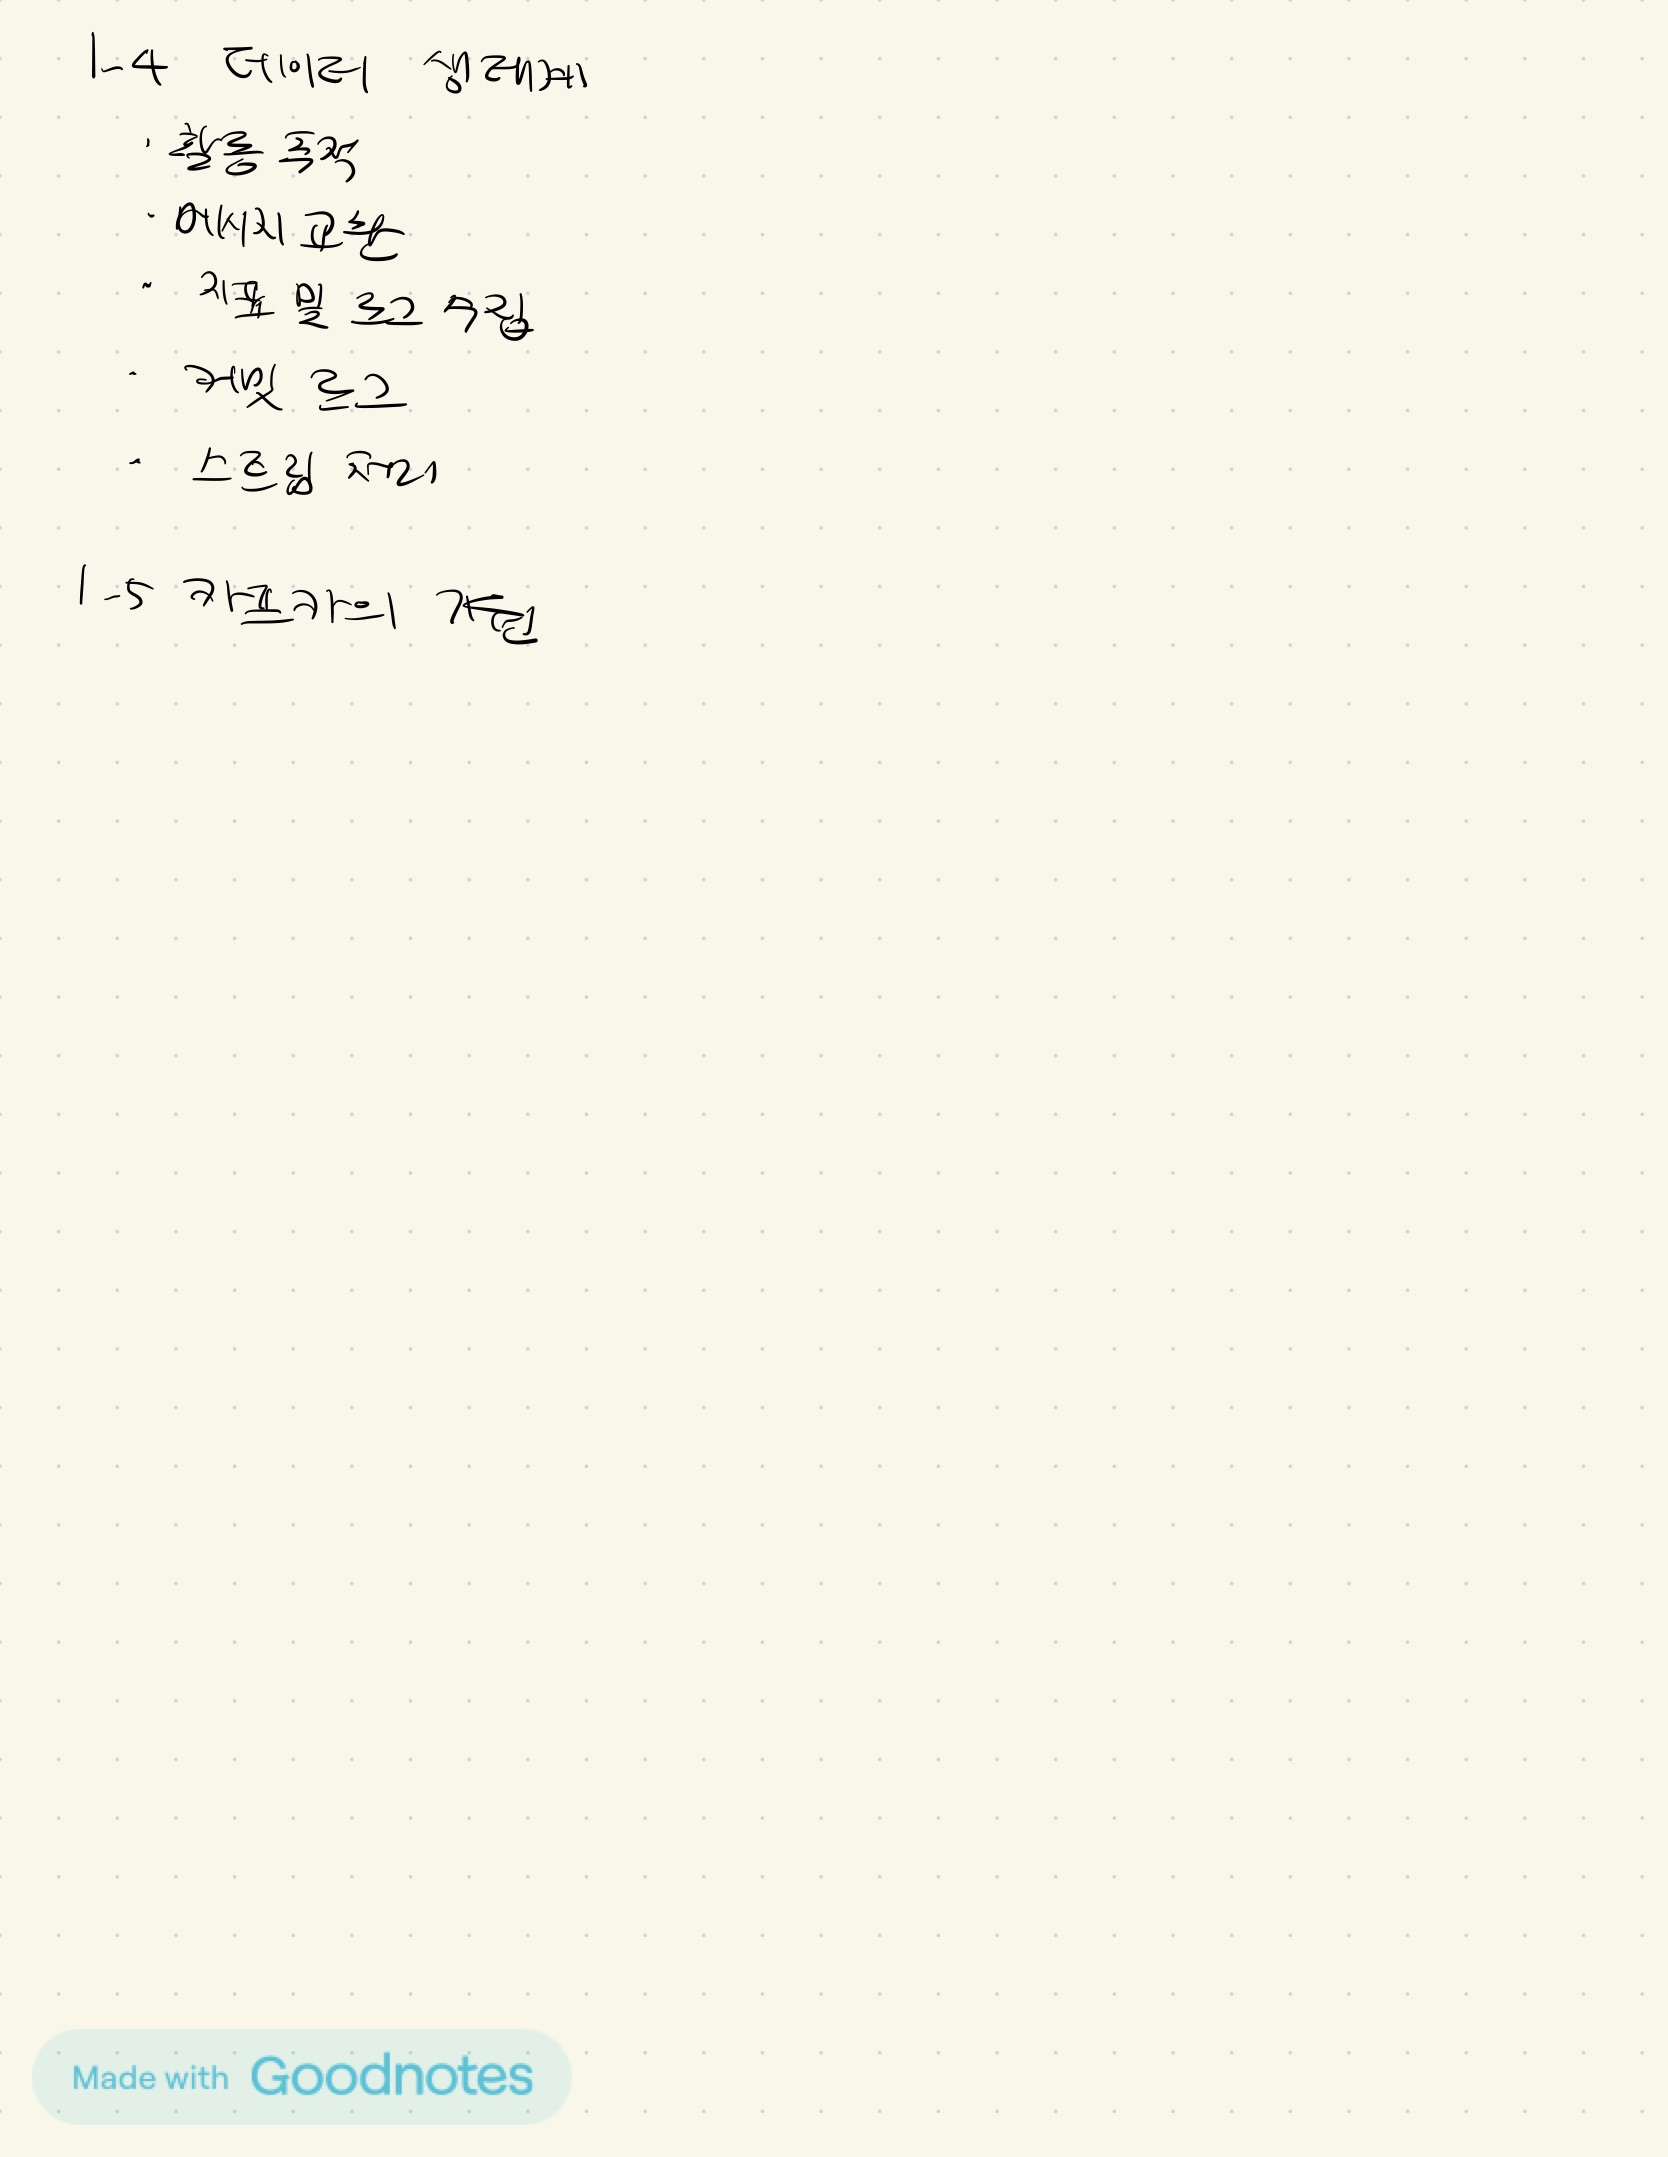 1-4 데이터 생태계
· 활동 추적
· 메시지 교환
· 지표 및 로그 수집
· 커밋 로그
· 스트림 처리
1-5 카프카의 기원
Made with Goodnotes